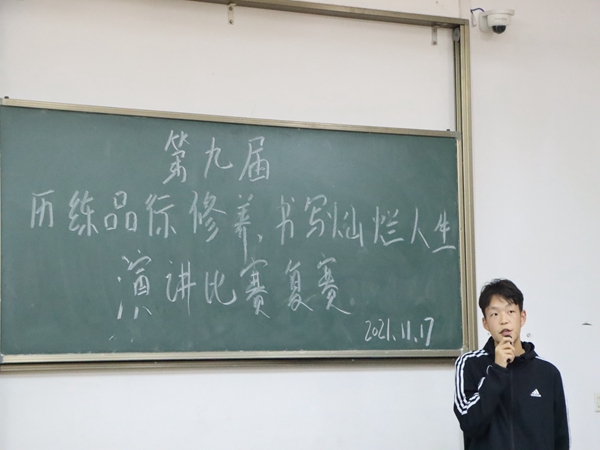 第九届
历练品行修养,书写灿烂人生
演讲比赛复赛
2021.11.17
adidas